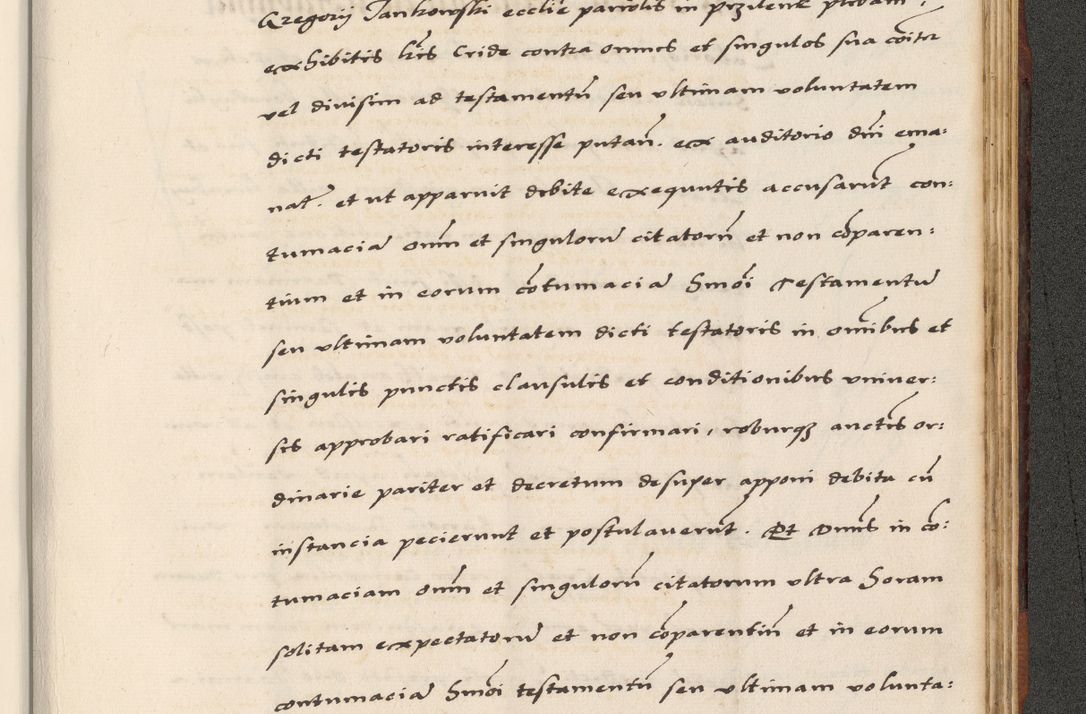 Gregorii Jankowski ecclie parrolis in przilenk pleban.
exhibitis lris Cride contra omnes et singulos sua cōitr
vel diuisim ad testamentū seu vltimam voluntatem
dicti testatoris interesse putan̄. ex auditorio dn̄i ema:
nat. et ut apparuit debite exequutis accusarūt con:
tumaciā om̄m et singulorū citatorū et non cōparen:
tium et in eorum cōtumaciā hmōi Testamentū
seu vltimam voluntatem dicti testatoris in om̄ibus et
singulis punctis clausulis et conditionibus vniuer:
sis approbari ratificari confirmari, roburqȝ auctis or:
dinarie pariter et decretum desuper apponi debita cū
instancia pecierunt et postulauerūt. Et Dnus in cō:
tumaciam om̄m et singulorū citatorum vltra horam
solitam expectatorū et non cōparentiū et in eorum
contumaciā hmōi testamentū seu vltimam volunta: